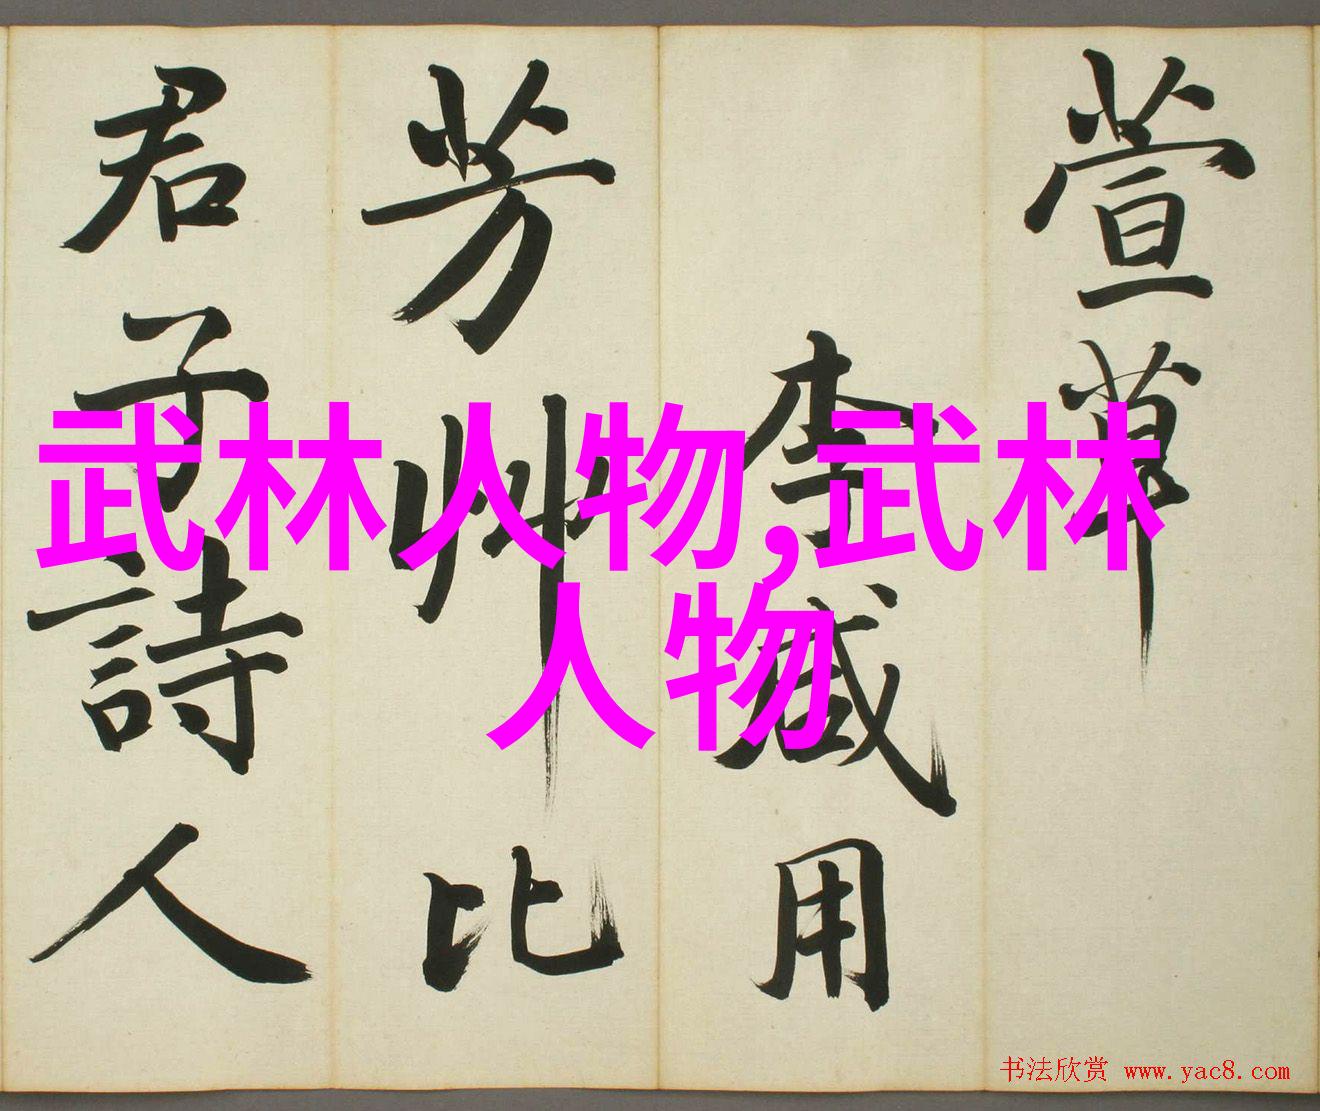 萱草
李咸用
芳艸比
君子詩人
武林人物,武林
人物
书法欣赏 www.yac8.com